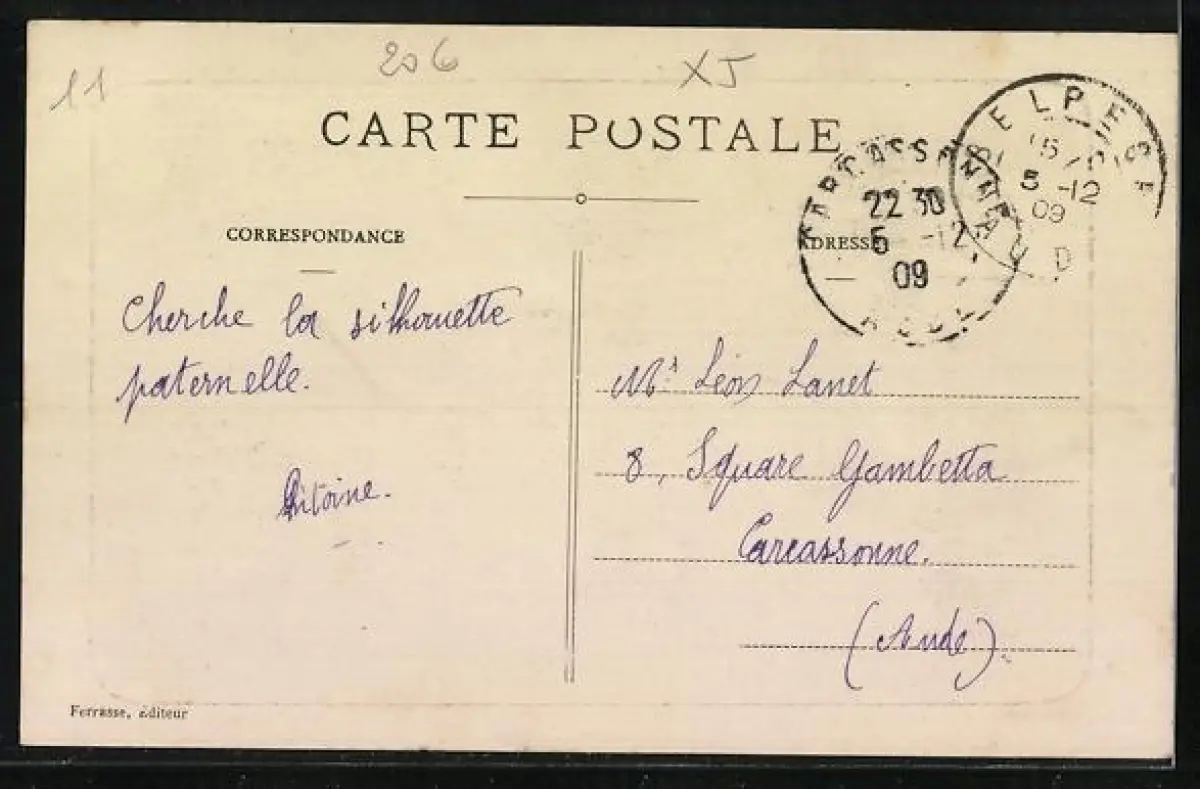 11
206
XJ
CARTE POSTALE
CORRESPONDANCE
ADRESSE
BELPECH
5 -12
09
CARCASSONNE
22 30
5 -12
09
AUDE
Cherche la silhouette
paternelle.
Mr Léon Lanet
8, Square Gambetta
Carcassonne.
(Aude).
Ferrasse, éditeur